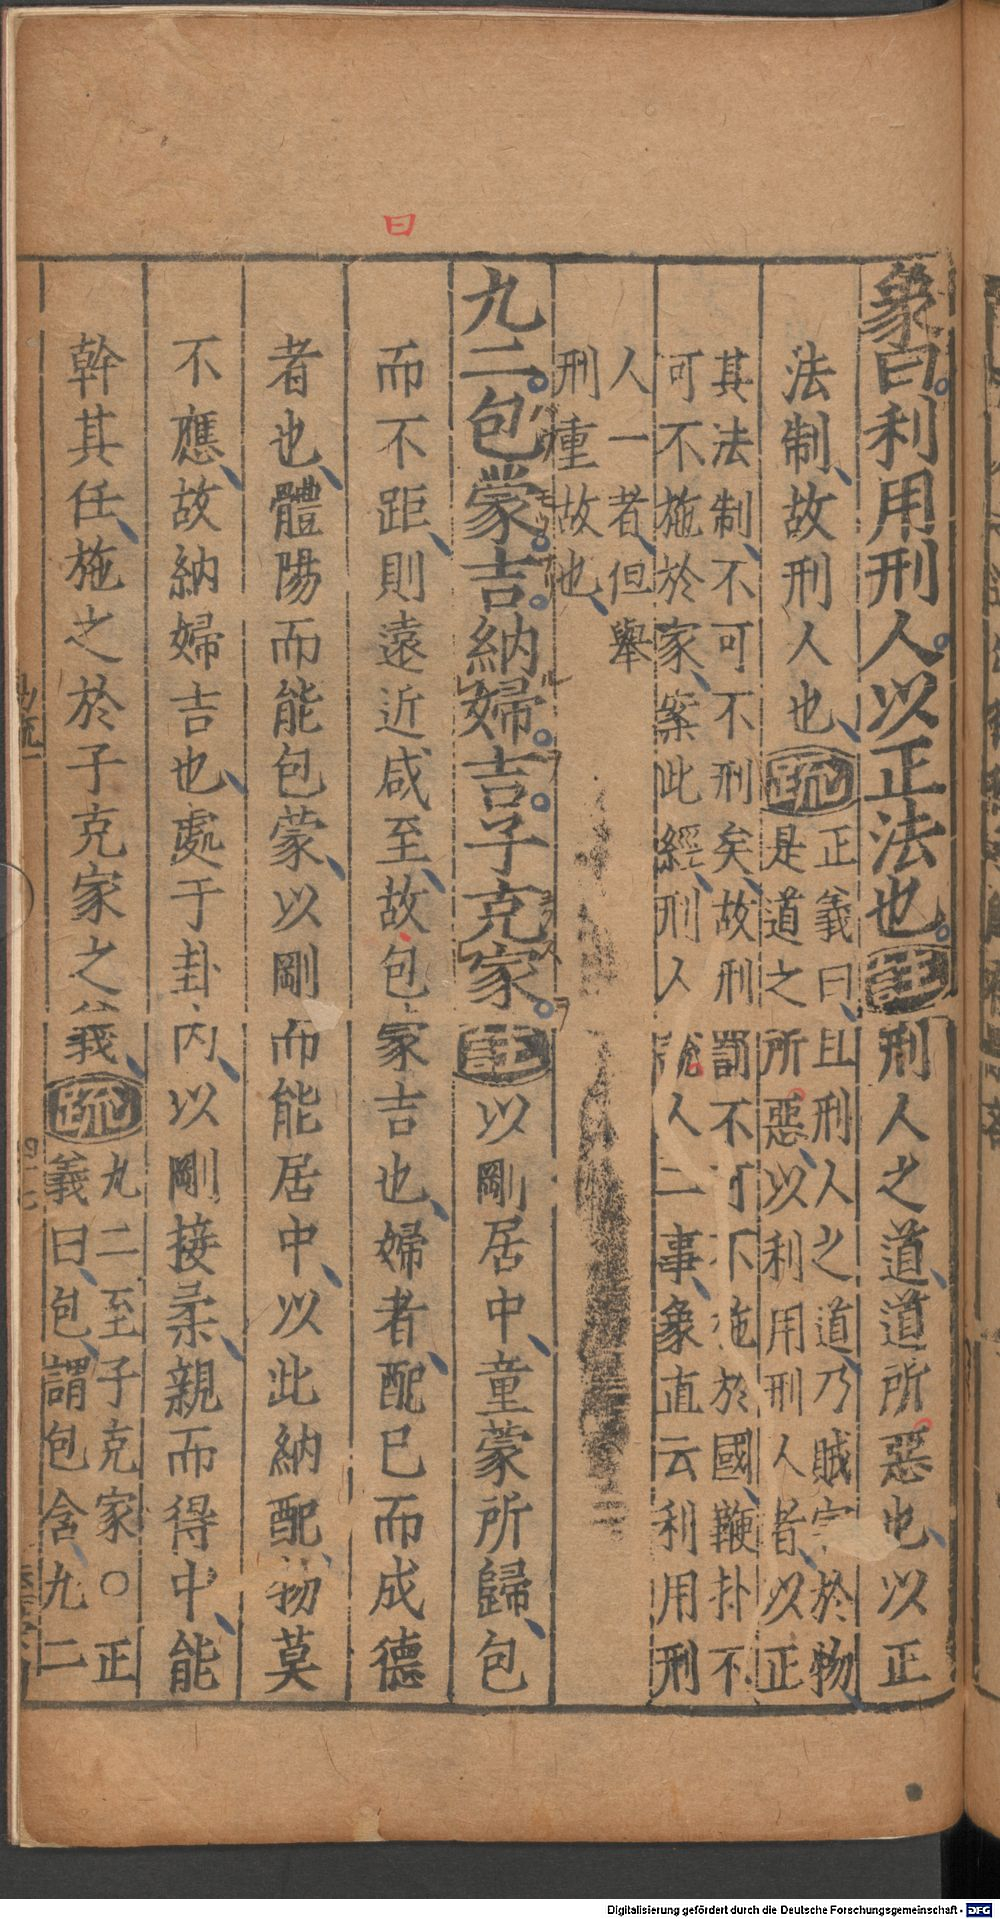 象曰利用刑人以正法也註刑人之道道所惡也以正
法制故刑人也疏正義曰且刑人之道乃賊害於物
是道之所惡以利用刑人者以正
其法制不可不刑矣故刑罰不可不施於國鞭扑不
可不施於家案此經刑人說人二事象直云利用刑
人一者但舉
刑重故也
九二包蒙吉納婦吉子克家註以剛居中童蒙所歸包
而不距則遠近咸至故包蒙吉也婦者配已而成德
者也體陽而能包蒙以剛而能居中以此納配物莫
不應故納婦吉也處于卦內以剛接柔親而得中能
幹其任施之於子克家之義疏九二至子克家○正
義曰包謂包含九二
曰
Digitalisierung gefördert durch die Deutsche Forschungsgemeinschaft - DFG